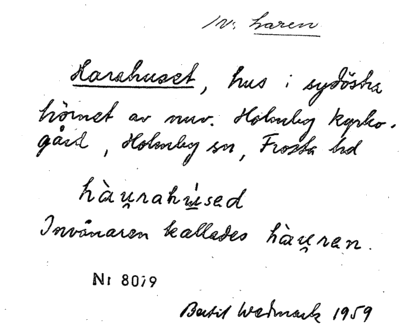 1 v. haren
Harahuset, hus i sydöstra
hörnet av nuv. Holmby kyrko-
gård, Holmby sn, Frosta hd
hàu̯rahúsed
Invånaren kallades hàu̯ren.
Nr 8079
Bertil Wedmark 1959